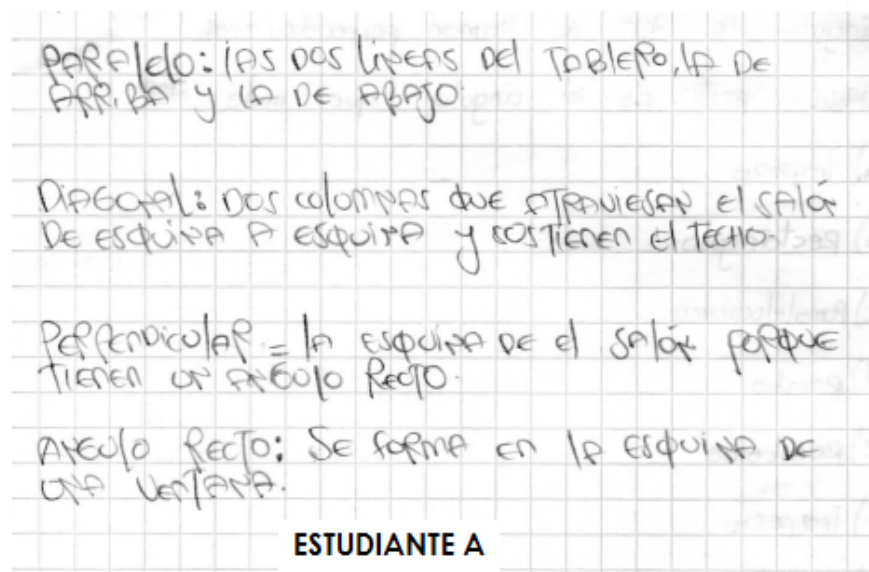 PARAlelO: lAS DOS líNEAS DEl TABlERO, lA DE
ARRiBA y lA DE ABAJO.
DiAGONAL: DOS colOMNAS QUE ATRAViESAN El SAlÓN
DE ESQUiNA A ESQUiNA y SOSTiENEN El TECHO.
PERPENDiCUlAR = lA ESQUiNA DE El SAlÓN PORQUE
TIENEN UN ANGUlO RECTO.
ANGUlO RECTO: SE FORMA EN lA ESQUiNA DE
UNA VENTANA.
ESTUDIANTE A